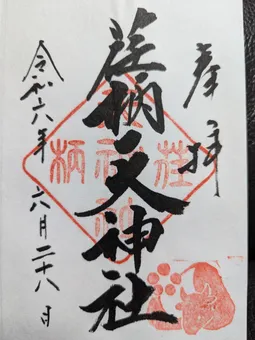 奉拝
荏柄天神社
令和六年六月二十八日
荏
柄